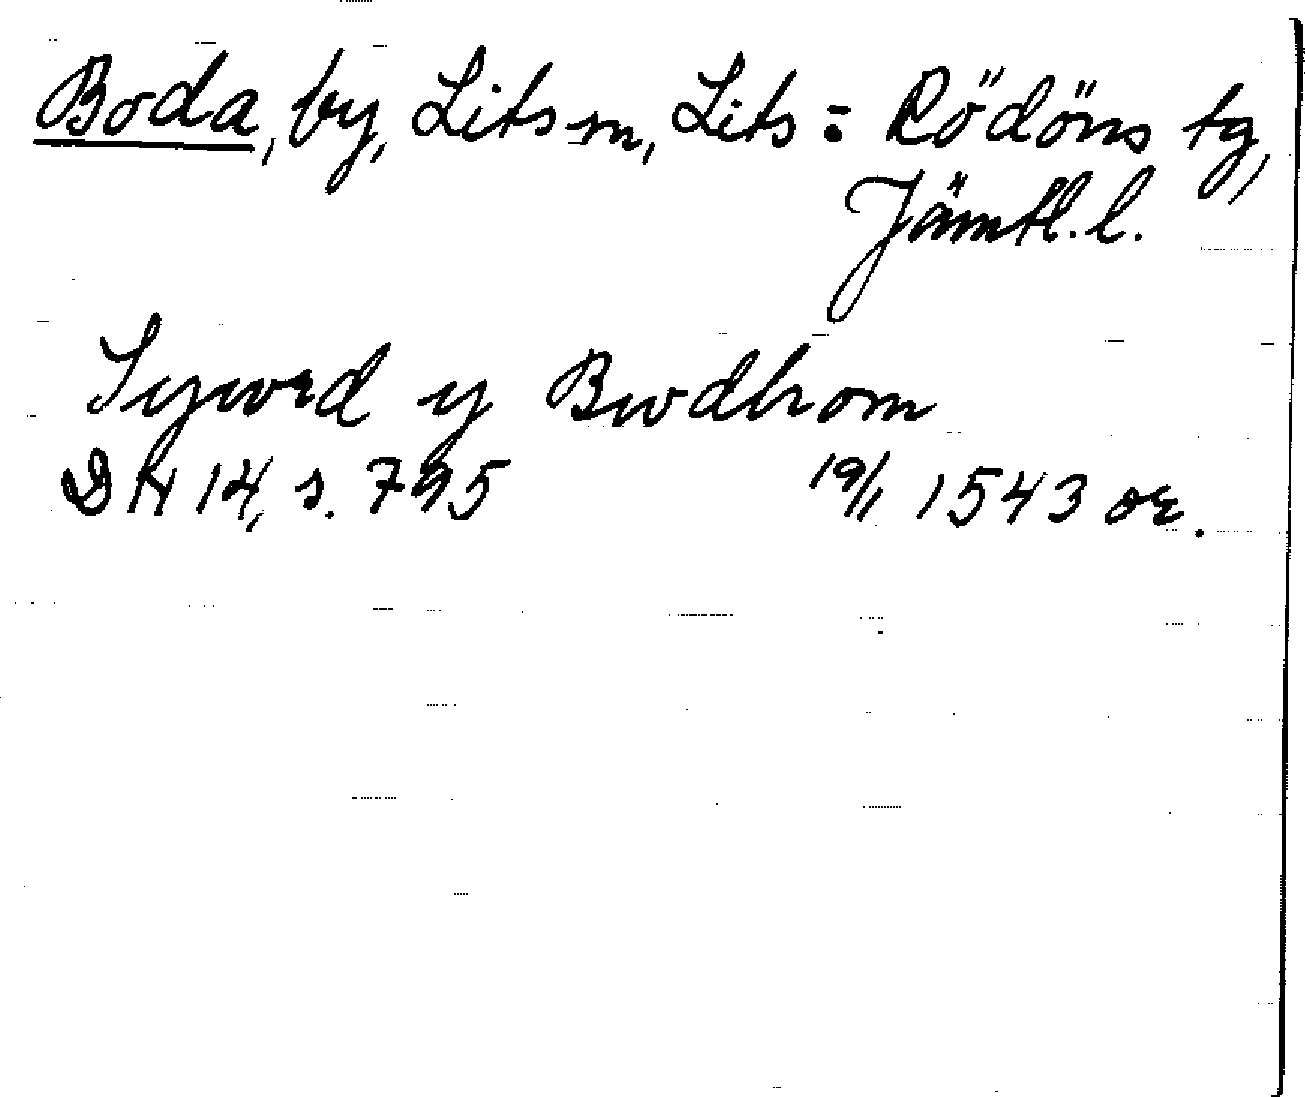 Boda, by, Lits sn, Lits = Rödöns tg,
Jämtl. l.
Sywrd y Bwdhom
DN 14, s. 795 19/1 1543 or.